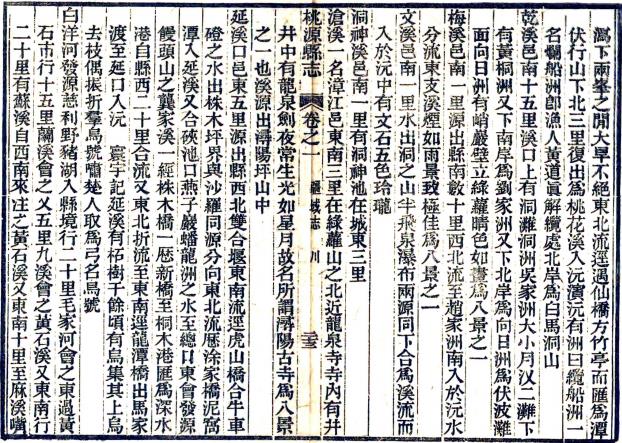 瀉下兩峯之間大旱不絕東北流逕遇仙橋方竹亭而匯爲潭
伏行山下北三里復出爲桃花溪入沅濱沅有洲曰纜船洲一
名爛船洲卽漁人黃道眞解纜處北岸爲白馬洞山
乾溪邑南十五里溪口上有洞灘洞灘吳家洲大小月汊二灘下
有黃桐洲又下南岸爲劉家洲又下北岸爲向日洲爲伏波灘
面向日洲有峭巖壁立綠蘿晴色如畫爲八景之一
梅溪邑南一里源出縣南數十里西北流至趙家洲南入於沅水
分流東支溪煙如雨景致極佳爲八景之一
文溪邑南一里水出洞之山半飛泉瀑布兩源同下合爲溪流而
入於沅中有文石五色玲瓏
洞神溪邑南一里有洞神池在城東三里
滄溪一名漳江邑東南三里在綠蘿山之北近龍泉寺寺內有井
桃源縣志 卷之一 疆域志 川 二三
井中有龍泉劍夜常生光如星月故名所謂潯陽古寺爲八景
之一也溪源出潯陽坪山中
延溪口邑東五里源出縣西北雙合堰東南流逕虎山橋合牛車
磴之水出株木坪界與沙羅同源分向東北流歷涂家橋泥窩
潭入延溪又合硤池口燕子巖蟠龍洲之水至總口東會發源
饅頭山之龔家溪一經株木橋一歷新橋至桐木港匯爲深水
港自縣西二十里合流又東北折流至東南逕龍潭橋出馬家
渡至延口入沅 寰宇記延溪有柘樹千餘頃有烏集其上烏
去枝偶振折羣烏號嘯楚人取爲弓名烏號
白洋河發源慈利野豬湖入縣境行二十里毛家河會之東過黃
石市行十五里蘭溪會之又五里九溪會之黃石溪又東南行
二十里有蘇溪自西南來注之黃石溪又東南十里至麻溪嘴